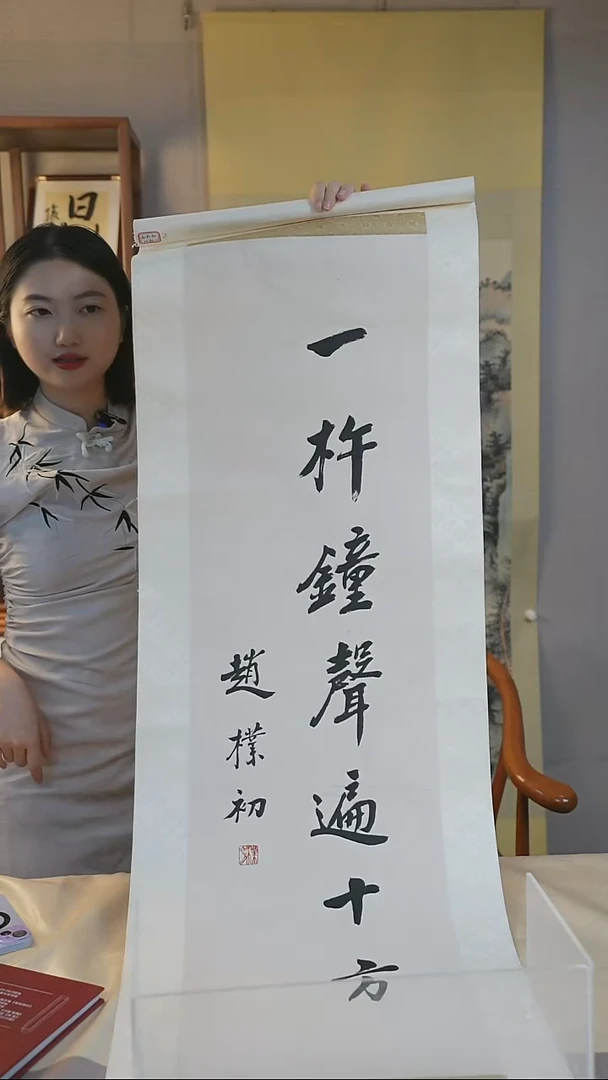 一杵鐘聲遍十方
趙樸初
日